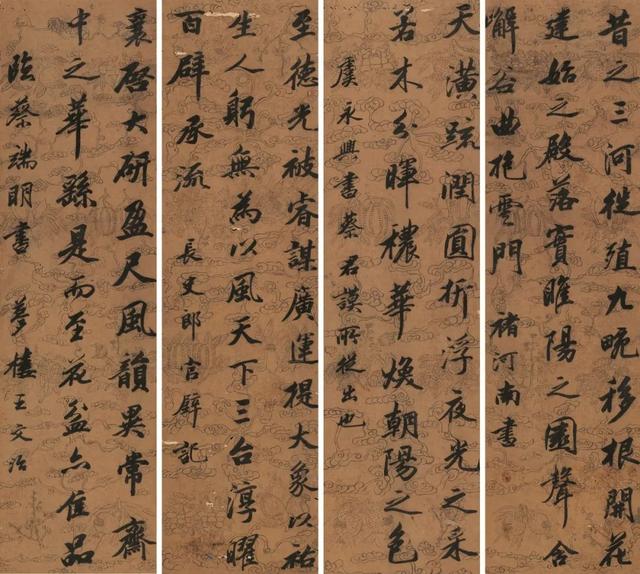 昔之三河徙殖九畹移根開花
建始之殿落實睢陽之園聲含
解谷曲抱雲門 褚河南書
天潢疏潤圓折浮夜光之采
若木分暉穠華煥朝陽之色
虞永興書蔡君謨所從出也
至德光被睿謀廣運提大象以祐
生人躬無為以風天下三台淳曜
百辟承流 長史郎官壁記
襄啓大研盈尺風韻異常齋
中之華繇是而至花盆亦佳品
臨蔡端明書 夢樓王文治